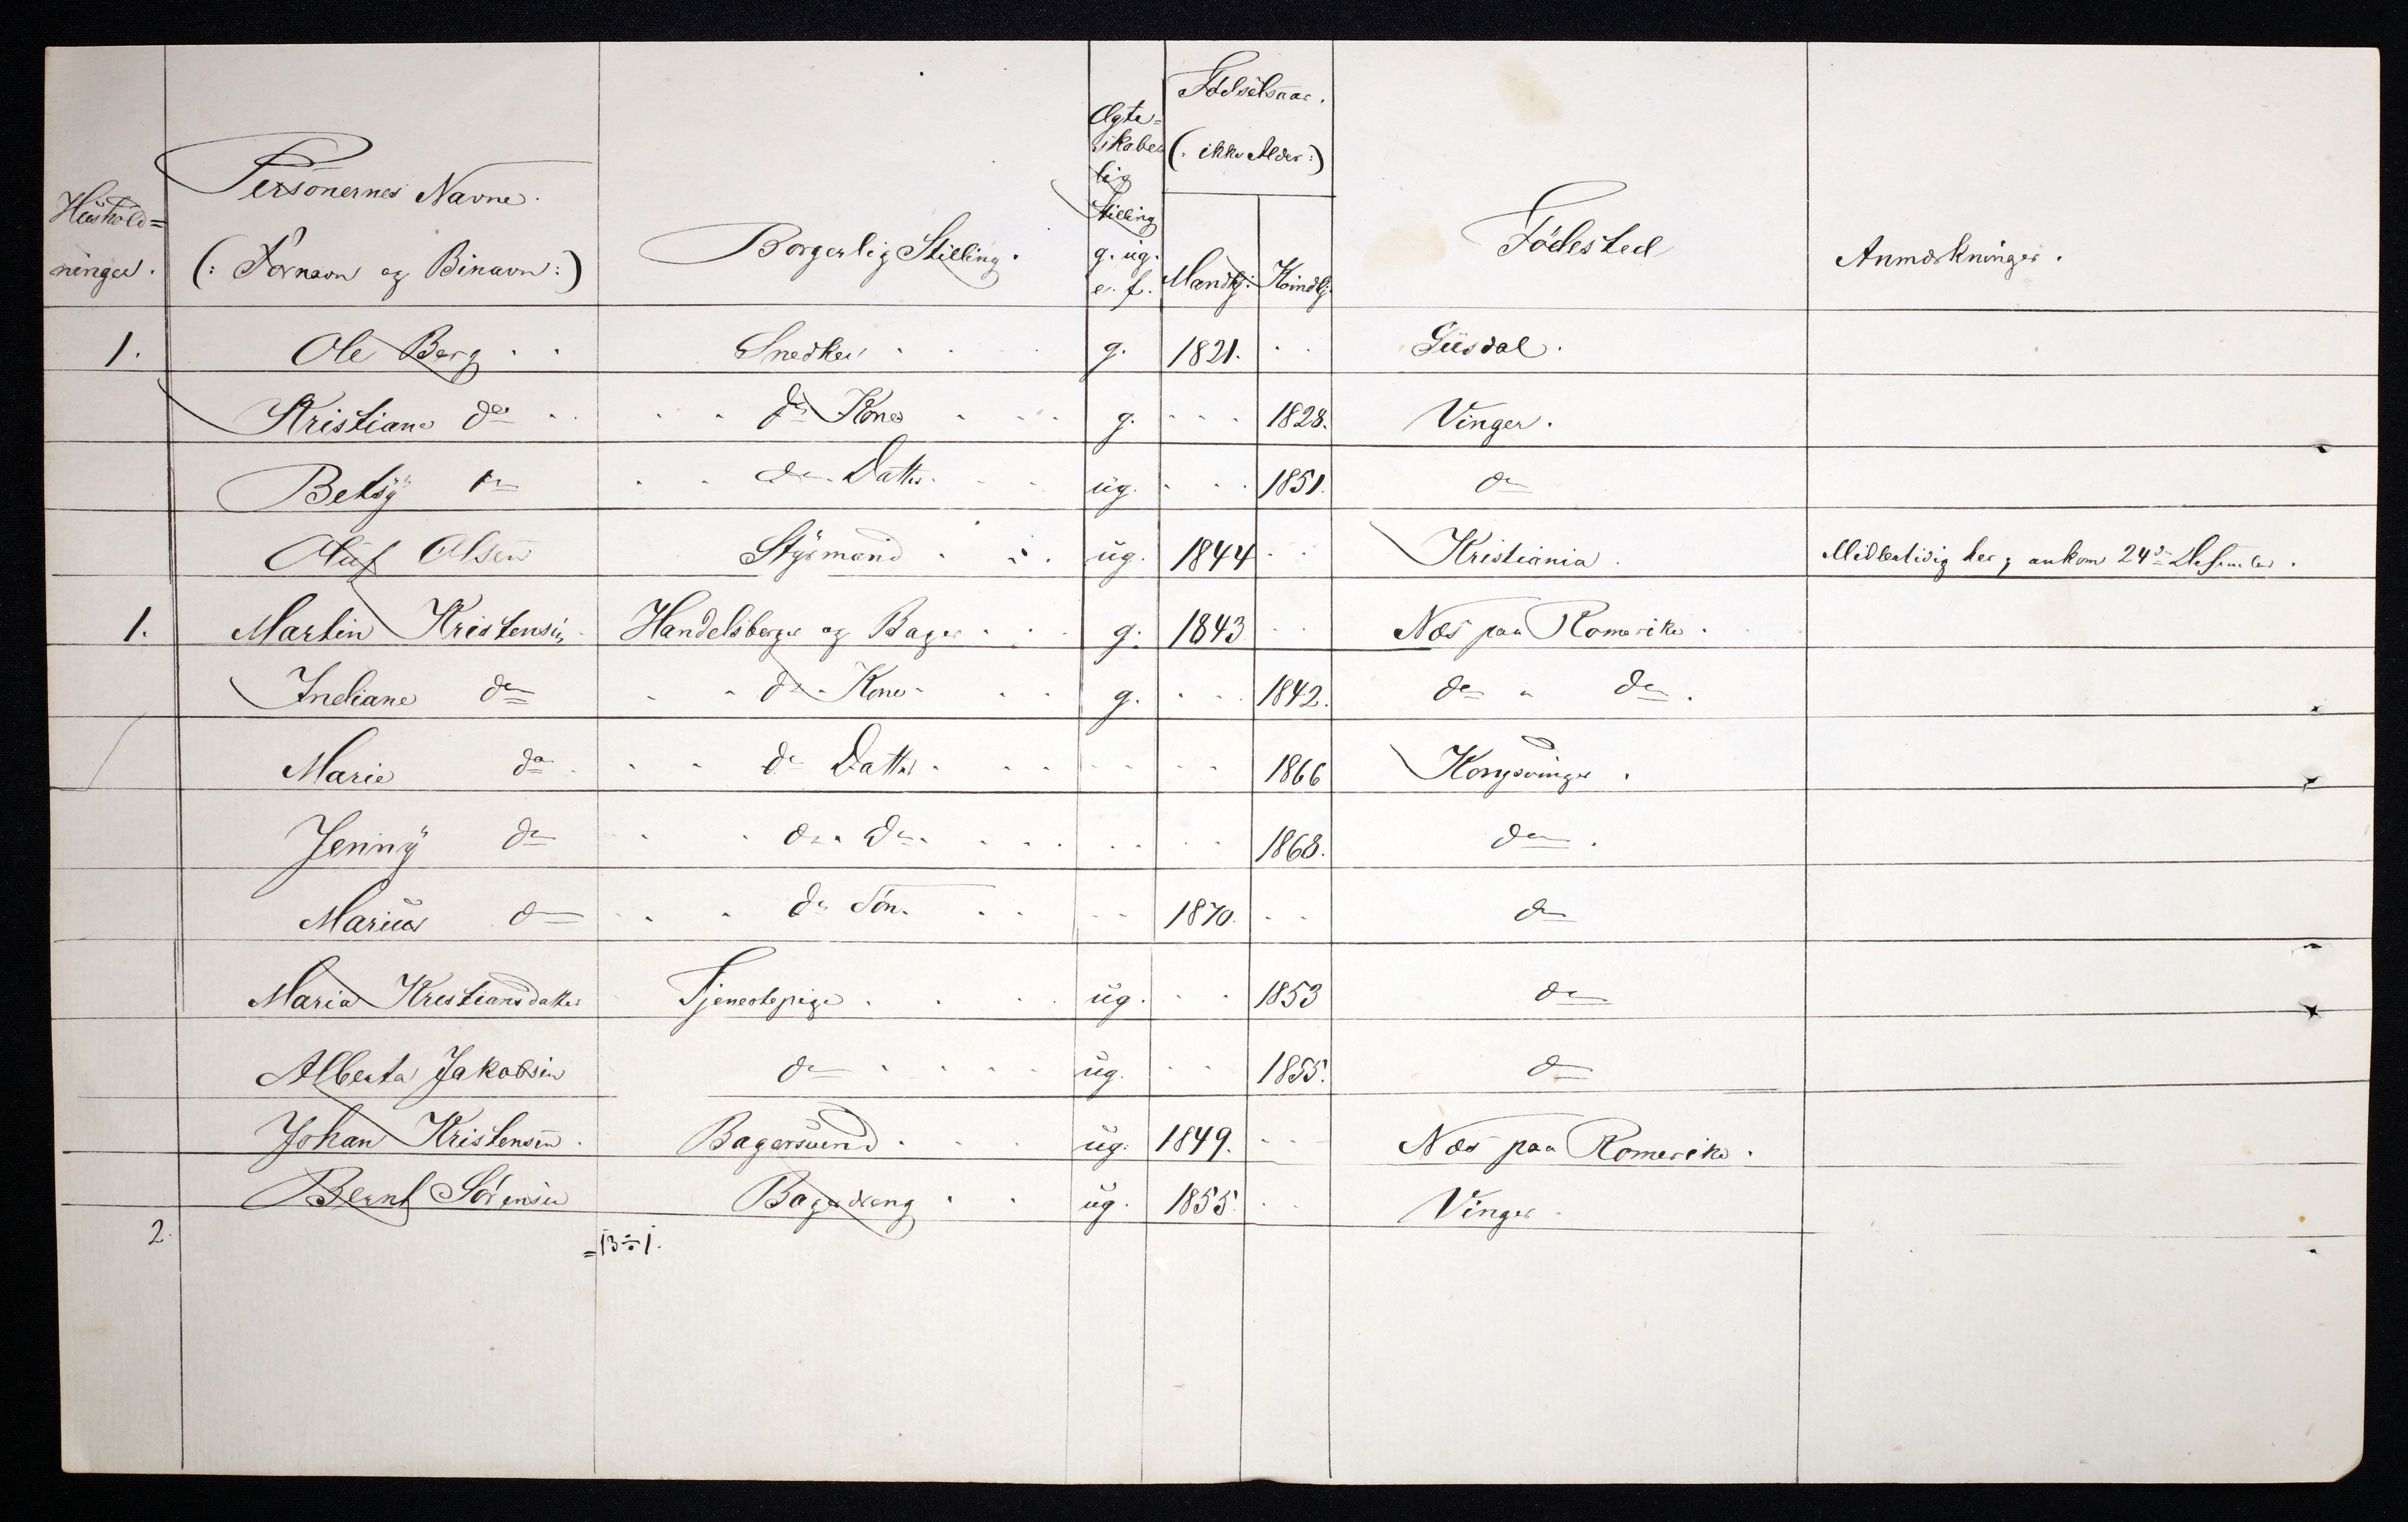 Hushold=
ninger.
Personernes Navne.
(: Fornavn og Binavn :)
Borgerlig Stilling.
Ægte=
skabe
lig
Stilling
g. ug.
e. f.
Fødselsaar.
(: ikke Alder :)
Mandkj. Kvindkj.
Fødested
Anmærkninger.
1. Ole Berg Snedker g. 1821. Gusdal.
Kristiane do do Kone g. 1828. Vinger.
Betsy do do Datter ug. 1851. do
Oluf Olsen Styrmand ug. 1844 Kristiania. Midlertidig her; ankom 24de Desember.
1. Martin Kristensen Handelsborger og Bager g. 1843 Næs paa Romerike.
Indiane do do Kone g. 1842. do " do.
Marie do do Datter 1866 Kongsvinger.
Jenny do do do 1868. do.
Marius do do Søn. 1870. do
Maria Kristiansdatter Tjenestepige ug. 1853 do
Alberta Jakobsen do ug. 1855. do
Johan Kristensen. Bagersvend ug. 1849. Næs paa Romerike.
Bernt Sørensen Bagerdreng ug. 1855. Vinger
2. =13÷1.